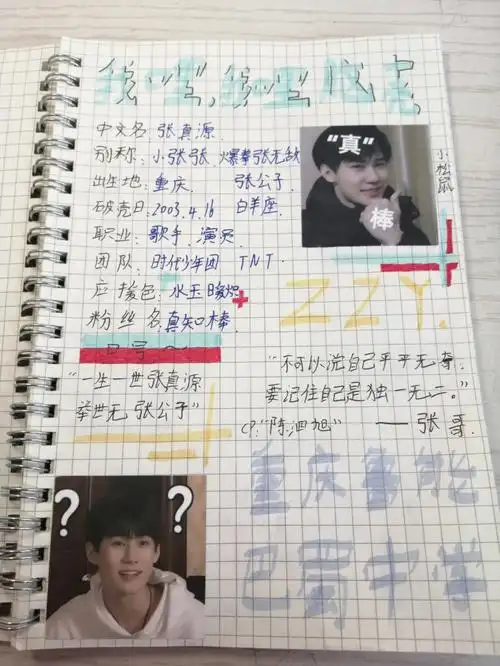 我嘿,我嘿
中文名 张真源
别称: 小张张. 爆棒张无敌
出生地: 重庆 张公子
破壳日: 2003.4.16 白羊座
职业: 歌手. 演员
团队: 时代少年团 TNT.
应援色: 水玉暖煴
粉丝名: 真知口棒
"真"
棒
小松鼠
ZZY.
口号
"一生一世张真源
举世无 张公子"
"不可以说自己平平无奇.
要记住自己是独一无二。"
CP:"陈泗旭" ——张哥.
重庆鲁能
巴蜀中学
? ?